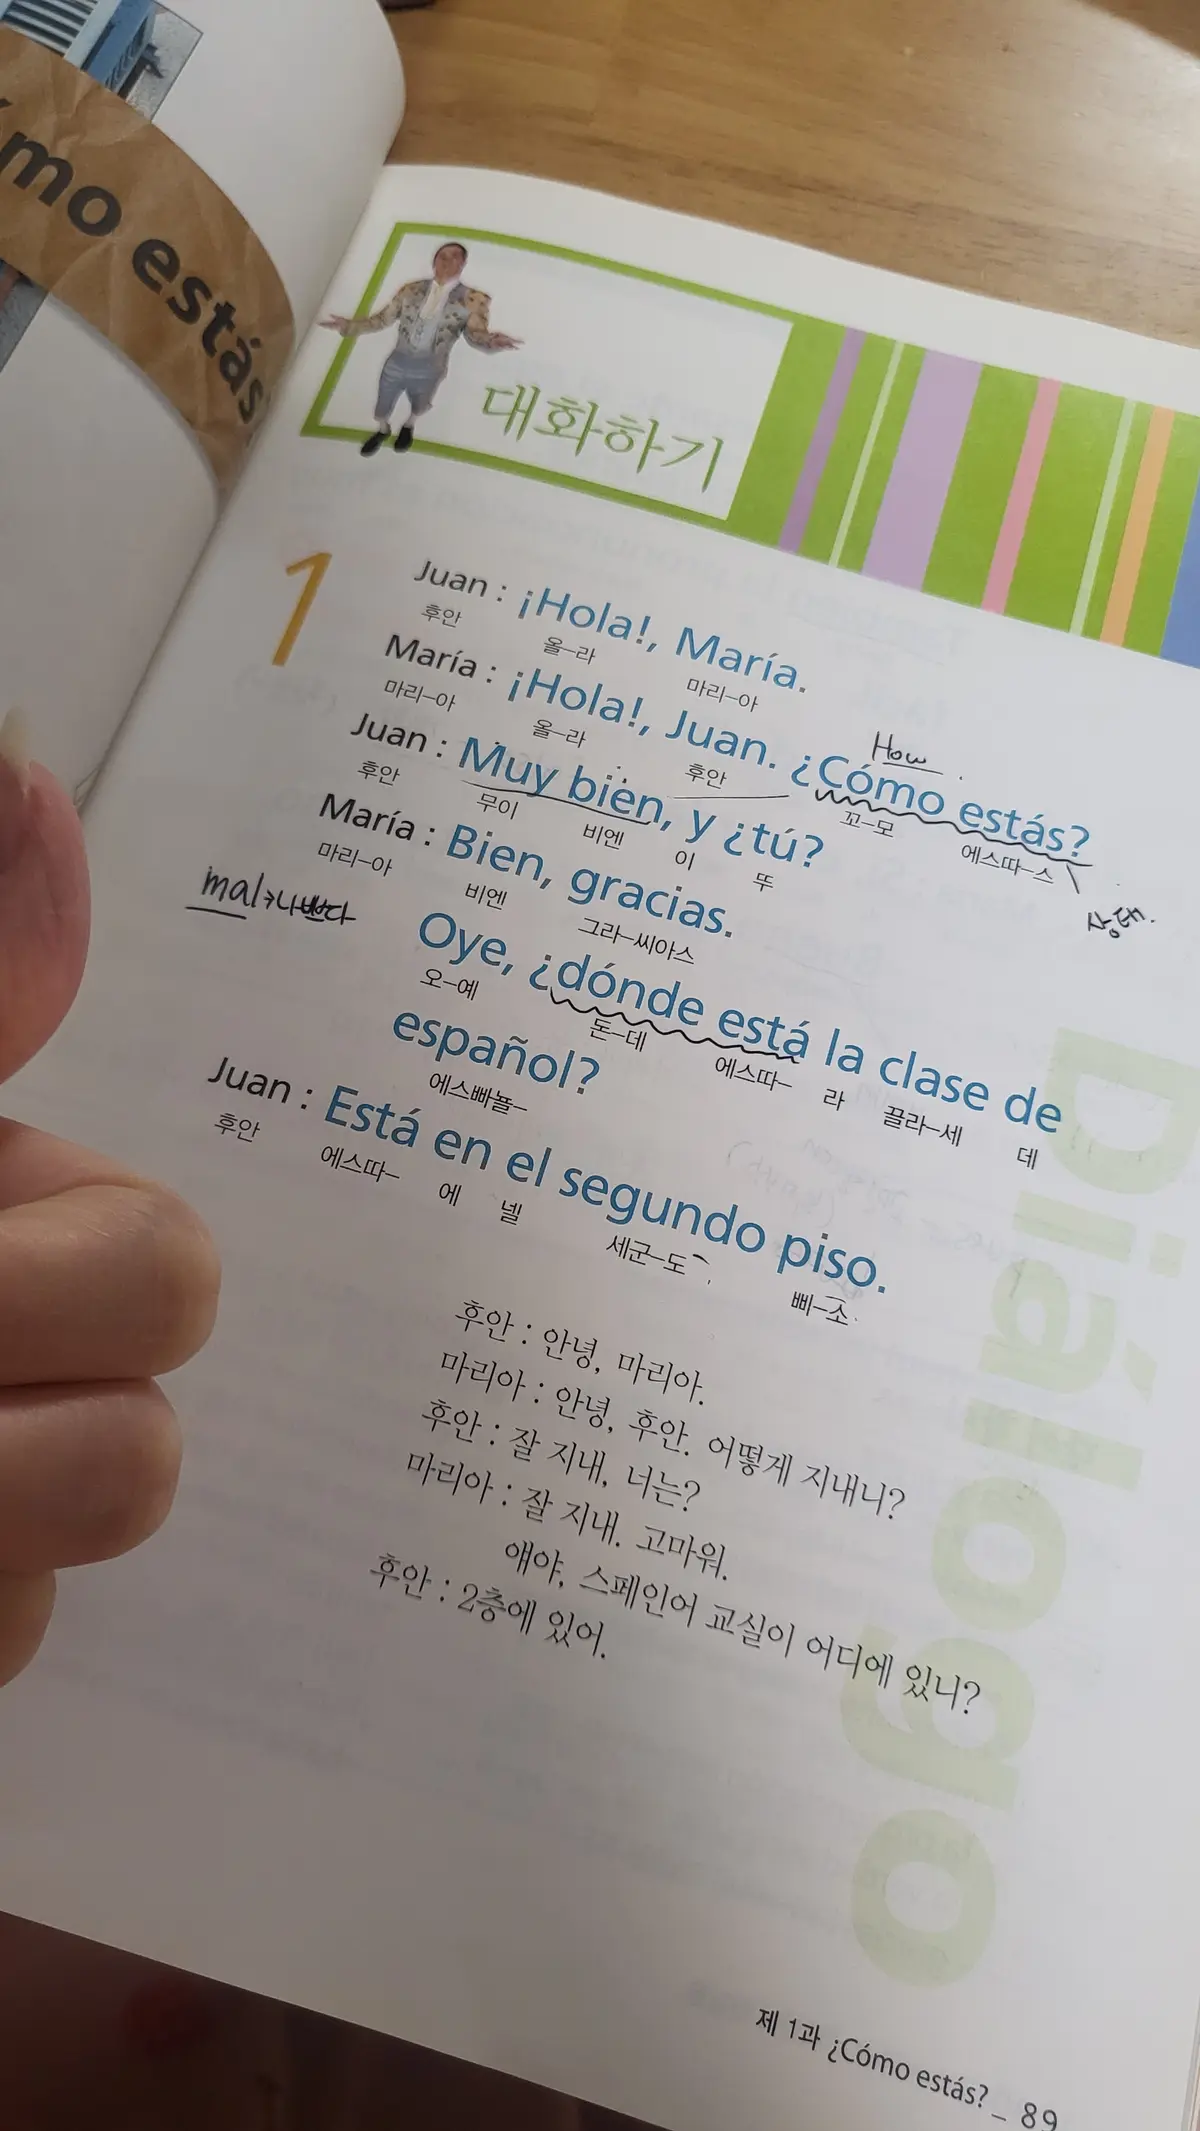 mo estás
대화하기
1
Juan : ¡Hola!, María.
후안 올–라 마리–아
María : ¡Hola!, Juan. ¿Cómo estás?
How
마리–아 올–라 후안 꼬–모 에스따–스
상태.
Juan : Muy bien, y ¿tú?
후안 무이 비엔 이 뚜
María : Bien, gracias.
마리–아 비엔 그라–씨아스
mal 나쁘다
Oye, ¿dónde está la clase de
오–예 돈–데 에스따– 라 끌라–세 데
español?
에스빠뇰–
Juan : Está en el segundo piso.
후안 에스따– 에 넬 세군–도 삐–소
후안 : 안녕, 마리아.
마리아 : 안녕, 후안. 어떻게 지내니?
후안 : 잘 지내, 너는?
마리아 : 잘 지내. 고마워.
얘야, 스페인어 교실이 어디에 있니?
후안 : 2층에 있어.
Diálogo
제 1과 ¿Cómo estás? _ 89